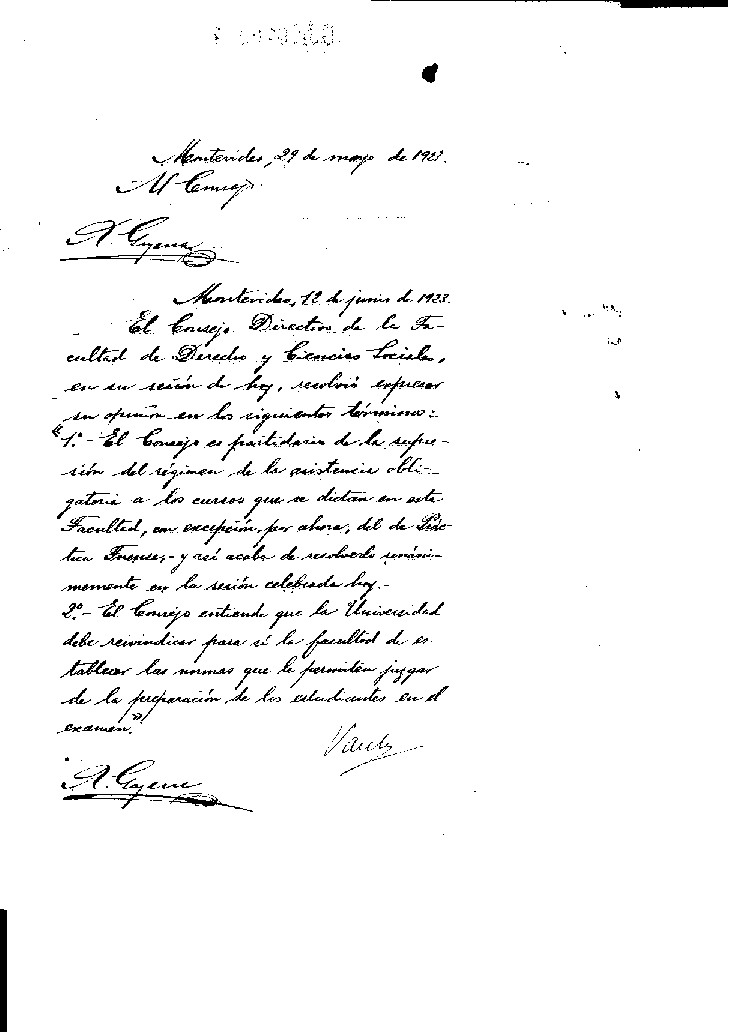 Montevideo, 29 de mayo de 1923.
Al Consejo.
Montevideo, 12 de junio de 1923.
El Consejo Directivo de la Fa-
cultad de Derecho y Ciencias Sociales,
en su sesión de hoy, resolvió expresar
su opinión en los siguientes términos:
"1º.- El Consejo es partidario de la supre-
sión del régimen de la asistencia obli-
gatoria a los cursos que se dictan en esta
Facultad, con excepción, por ahora, del de Prác-
tica Forense,- y así acaba de resolverlo unáni-
memente en la sesión celebrada hoy.-
2º.- El Consejo entiende que la Universidad
debe reivindicar para sí la facultad de es
tablecer las normas que le permitan juzgar
de la preparación de los estudiantes en el
examen."